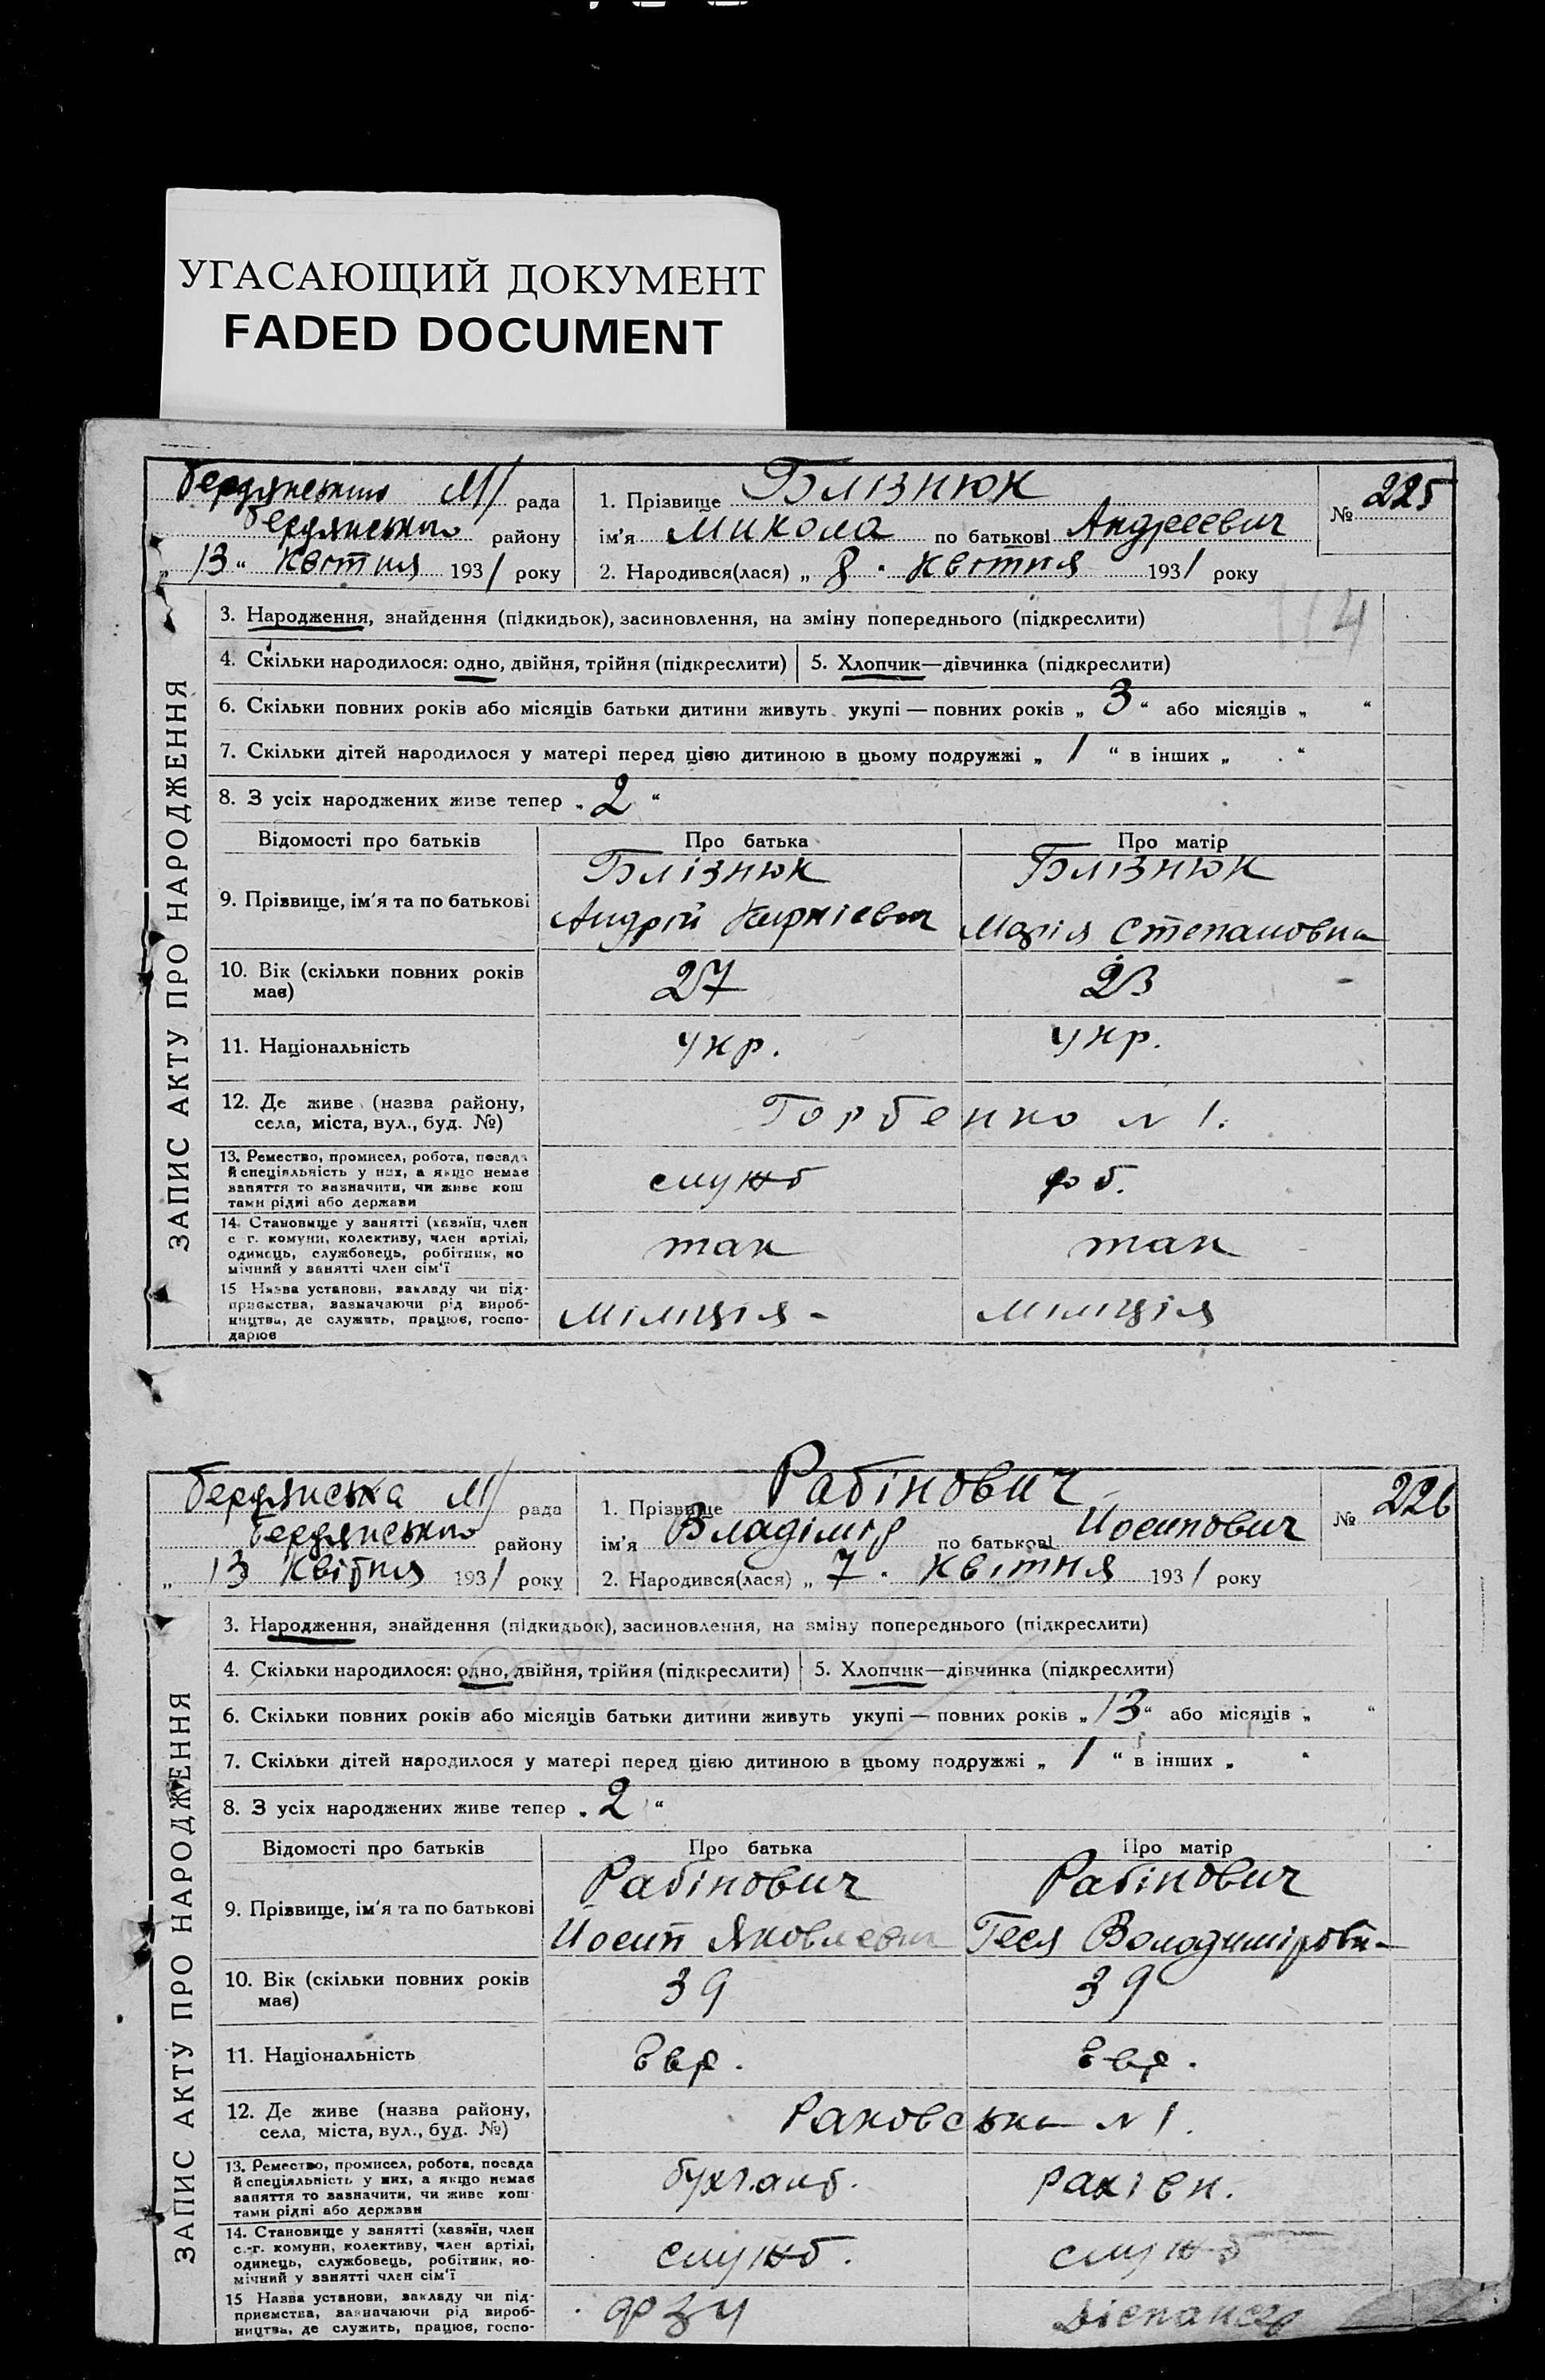 УГАСАЮЩИЙ ДОКУМЕНТ
FADED DOCUMENT
Бердянська М/ рада
Бердянського району
„ 13 “ Квітня 1931 року
1. Прізвище Блізнюк
ім'я Микола по батькові Андреевич
2. Народився(лася) „ 8 “ Квітня 1931 року
№ 225
114
ЗАПИС АКТУ ПРО НАРОДЖЕННЯ
3. Народження, знайдення (підкидьок), засиновлення, на зміну попереднього (підкреслити)
4. Скільки народилося: одно, двійня, трійня (підкреслити) 5. Хлопчик—дівчинка (підкреслити)
6. Скільки повних років або місяців батьки дитини живуть укупі — повних років „ 3 “ або місяців „ “
7. Скільки дітей народилося у матері перед цією дитиною в цьому подружжі „ 1 “ в інших „ “
8. З усіх народжених живе тепер „ 2 “
Відомості про батьків Про батька Про матір
9. Прізвище, ім'я та по батькові
Блізнюк
Андрій
Блізнюк
Марія Степановна
10. Вік (скільки повних років
має)
27
23
11. Національність
укр.
укр.
12. Де живе (назва району,
села, міста, вул., буд. №)
Горбенко № 1.
13. Ремество, промисел, робота, посада
й спеціяльність у них, а якщо немає
заняття то зазначити, чи живе кош
тами рідні або держави
служб
роб.
14. Становище у занятті (хазяїн, член
с г. комуни, колективу, член артілі,
одинець, службовець, робітник, по
мічний у занятті член сім'ї
так
так
15 Назва установи, закладу чи під-
приємства, зазначаючи рід вироб-
ництва, де служить, працює, госпо-
дарює
Міліція -
Міліція
Бердянська М/ рада
Бердянського району
„ 13 Квітня 1931 року
1. Прізвище Рабінович
ім'я Владімір по батькові Йосипович
2. Народився(лася) „ 7 “ Квітня 1931 року
№ 226
ЗАПИС АКТУ ПРО НАРОДЖЕННЯ
3. Народження, знайдення (підкидьок), засиновлення, на зміну попереднього (підкреслити)
4. Скільки народилося: одно, двійня, трійня (підкреслити) 5. Хлопчик—дівчинка (підкреслити)
6. Скільки повних років або місяців батьки дитини живуть укупі — повних років „ 13 “ або місяців „ “
7. Скільки дітей народилося у матері перед цією дитиною в цьому подружжі „ 1 “ в інших „ “
8. З усіх народжених живе тепер „ 2 “
Відомості про батьків Про батька Про матір
9. Прізвище, ім'я та по батькові
Рабінович
Йосип Яковлевич
Рабінович
Геся Володимірівн-
10. Вік (скільки повних років
має)
39
39
11. Національність
Евр.
Евр.
12. Де живе (назва району,
села, міста, вул., буд. №)
Раковська № 1.
13. Ремество, промисел, робота, посада
й спеціяльність у них, а якщо немає
заняття то зазначити, чи живе кош-
тами рідні або держави
14. Становище у занятті (хазяїн, член
с.-г. комуни, колективу, член артілі,
одинець, службовець, робітник, по-
мічний у занятті член сім'ї
служб.
служб
15 Назва установи, закладу чи під-
приємства, зазначаючи рід вироб-
ництва, де служить, працює, госпо-
ФЗУ